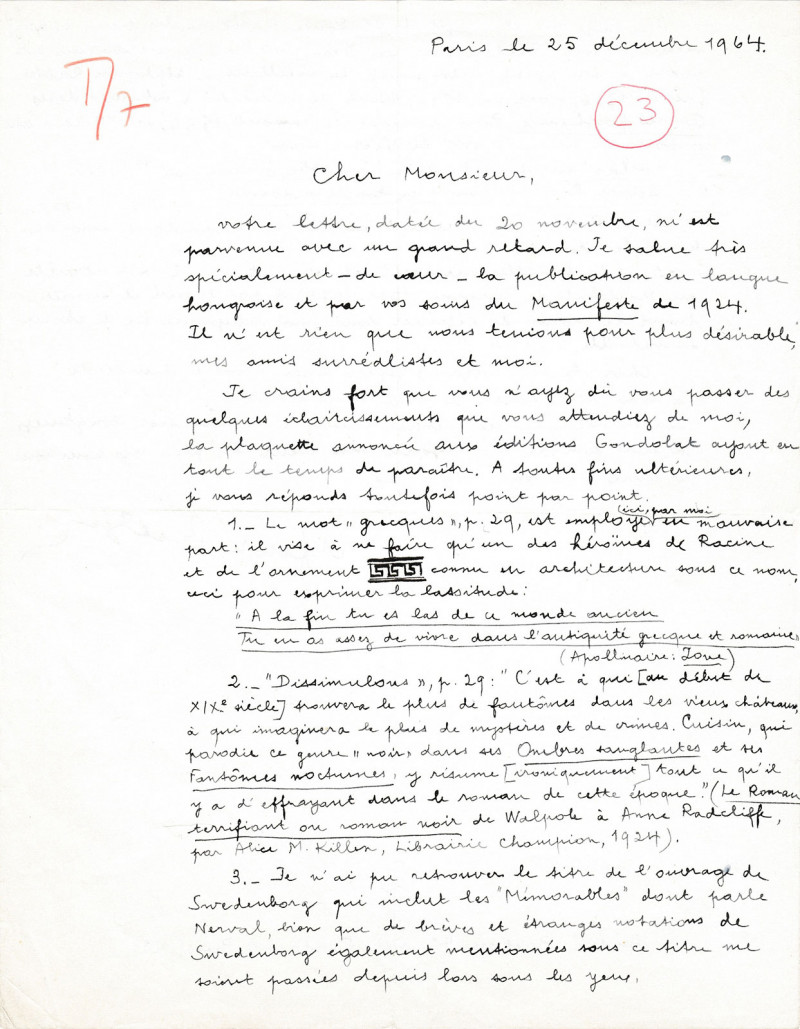 Paris le 25 décembre 1964.
T/7
23
Cher Monsieur,
votre lettre, datée du 20 novembre, m'est
parvenue avec un grand retard. Je salue très
spécialement — de cœur — la publication en langue
hongroise et par vos soins du Manifeste de 1924.
Il n'est rien que nous tenions pour plus désirable,
mes amis surréalistes et moi.
Je crains fort que vous n'ayez dû vous passer des
quelques éclaircissements que vous attendiez de moi,
la plaquette annoncée aux éditions Gondolat ayant eu
tout le temps de paraître. A toutes fins ultérieures,
je vous réponds toutefois point par point.
(ici, par moi)
1._ Le mot "grecques", p. 29, est employé en mauvaise
part : il vise à ne faire qu'un des héroïnes de Racine
et de l'ornement connu en architecture sous ce nom,
ceci pour exprimer la lassitude :
"A la fin tu es las de ce monde ancien
Tu en as assez de vivre dans l'antiquité grecque et romaine"
(Apollinaire : Zone)
2._ "Dissimulons", p. 29 : "C'est à qui [au début de
XIXe siècle] trouvera le plus de fantômes dans les vieux châteaux,
à qui imaginera le plus de mystères et de crimes. Cuisin, qui
parodie ce genre "noir" dans ses Ombres sanglantes et ses
Fantômes nocturnes, y résume [ironiquement] tout ce qu'il
y a d'effrayant dans le roman de cette époque." (Le Roman
terrifiant ou roman noir de Walpole à Anne Radcliffe,
par Alice M. Killen, Librairie Champion, 1924).
3._ Je n'ai pu retrouver le titre de l'ouvrage de
Swedenborg qui inclut les "Mémorables" dont parle
Nerval, bien que de brèves et étranges notations de
Swedenborg également mentionnées sous ce titre me
soient passées depuis lors sous les yeux.